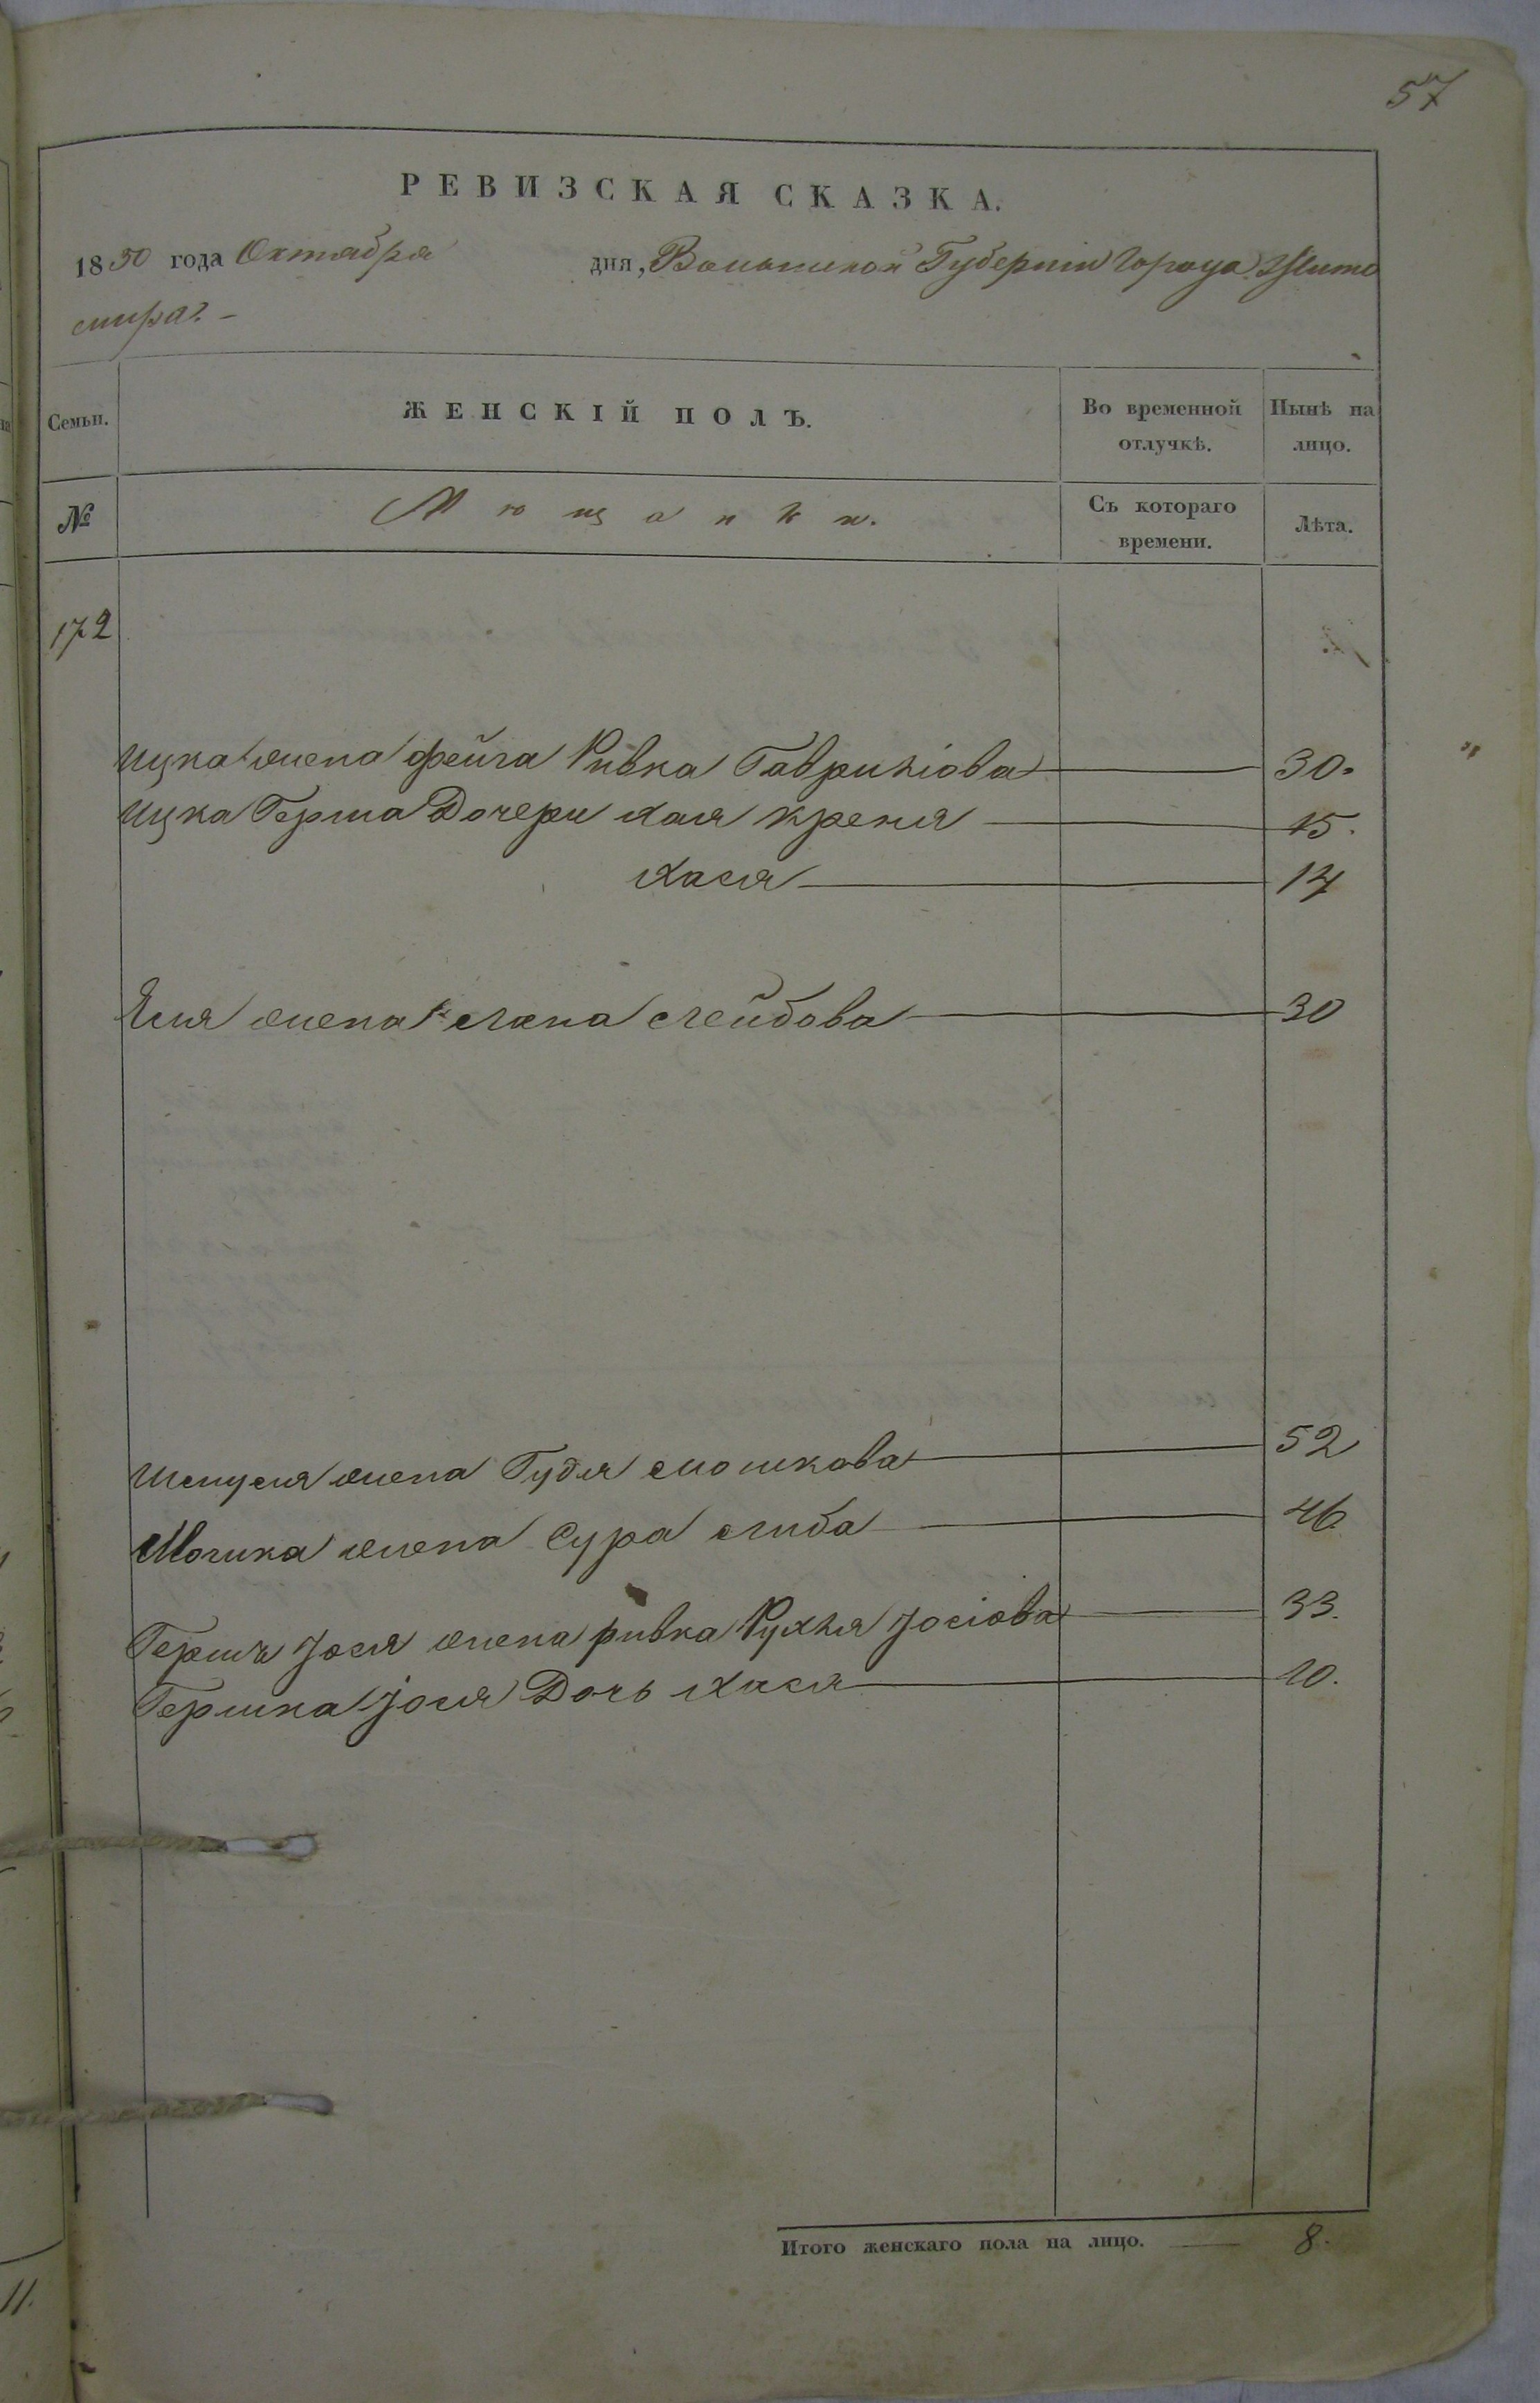 57
РЕВИЗСКАЯ СКАЗКА.
1850 года Октабря дня, Волынской Губерніи Города Жито
мира. –
Семьи. ЖЕНСКІЙ ПОЛЪ. Во временной отлучкѣ. Нынѣ на лицо.
№ Мѣщанки. Съ котораго времени. Лѣта.
172
Ицка жена Фейга Ривка Гаврилюва 30.
Ицка Герша Дочери Хая Креня 15.
Хася 14
жена Хана Лейбова 30
жена Гудля Мошкова 52
Мошка жена Сура Либа 46.
Гершъ Іося жена Ривка Рухля Іосіова 33.
Гершка Іося Дочь Хася 10.
Итого женскаго пола на лицо. 8.
11.